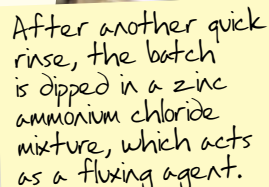 After another quick
rinse, the batch
is dipped in a zinc
ammonium chloride
mixture, which acts
as a fluxing agent.